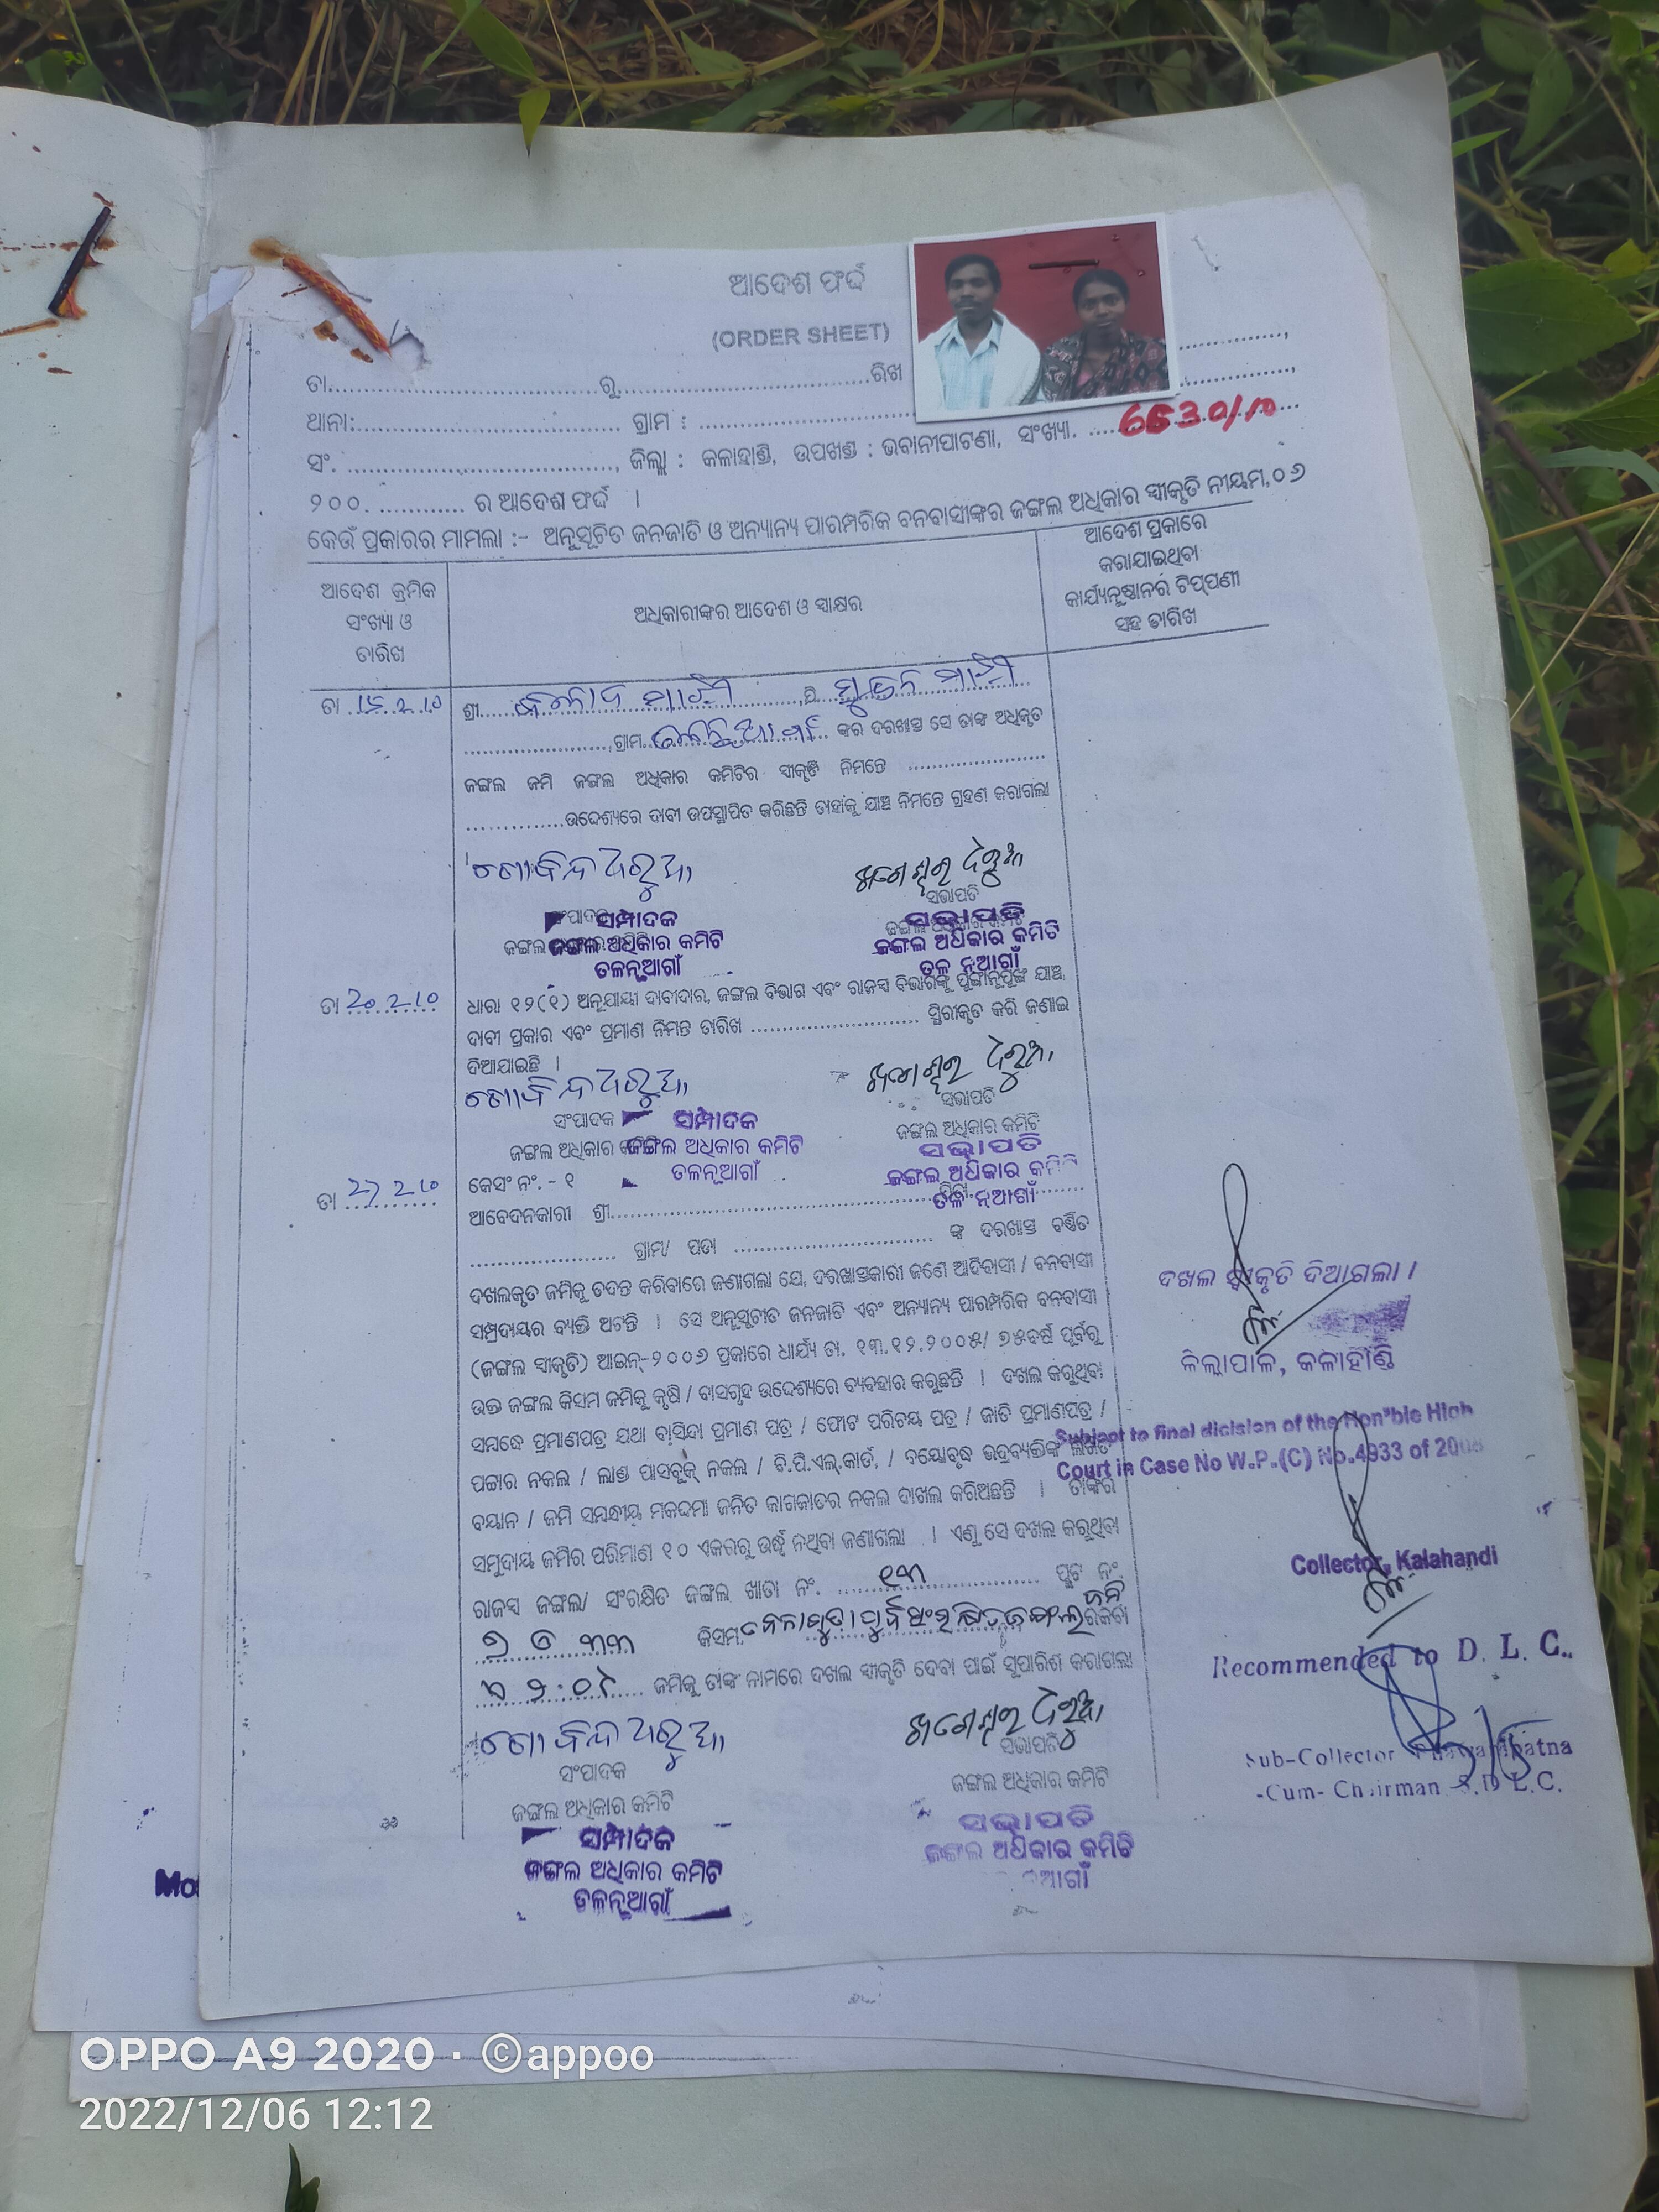 ଆଦେଶ ଫର୍ଦ୍ଦ
(ORDER SHEET)
ତା..............ରୁ..............ରିଖ
ଥାନା:.............. ଗ୍ରାମ : ..............
ସଂ. .............., ଜିଲ୍ଲା : କଳାହାଣ୍ଡି, ଉପଖଣ୍ଡ : ଭବାନୀପାଟଣା, ସଂଖ୍ୟା. .... 6630/10
୨୦୦. ............ ର ଆଦେଶ ଫର୍ଦ୍ଦ ।
କେଉଁ ପ୍ରକାରର ମାମଲା :- ଅନୁସୂଚିତ ଜନଜାତି ଓ ଅନ୍ୟାନ୍ୟ ପାରମ୍ପରିକ ବନବାସୀଙ୍କର ଜଙ୍ଗଲ ଅଧିକାର ସ୍ୱୀକୃତି ନୀୟମ,୦୬
ଆଦେଶ କ୍ରମିକ
ସଂଖ୍ୟା ଓ
ତାରିଖ
ଅଧିକାରୀଙ୍କର ଆଦେଶ ଓ ସ୍ୱାକ୍ଷର
ଆଦେଶ ପ୍ରକାରେ
କରାଯାଇଥିବା
କାର୍ଯ୍ୟାନୁଷ୍ଠାନର ଟିପ୍ପଣୀ
ସହ ତାରିଖ
ତା 15.2.10
ଶ୍ରୀ.... ମାଝୀ ....,ପି.... ମାଝୀ
..............,ଗ୍ରାମ.... ଙ୍କର ଦରଖାସ୍ତ ସେ ତାଙ୍କ ଅଧିକୃତ
ଜଙ୍ଗଲ ଜମି ଜଙ୍ଗଲ ଅଧିକାର କମିଟିର ସ୍ୱୀକୃତି ନିମନ୍ତେ ..............
..............ଉଦ୍ଦେଶ୍ୟରେ ଦାବୀ ଉପସ୍ଥାପିତ କରିଛନ୍ତି ତାହାକୁ ଯାଞ୍ଚ ନିମନ୍ତେ ଗ୍ରହଣ କରାଗଲା
ଗୋବିନ୍ଦ ଅରୁଆ
ସମ୍ପାଦକ
ଜଙ୍ଗଲ ଅଧିକାର କମିଟି
ତଳନୂଆଗାଁ
ସଭାପତି
ଜଙ୍ଗଲ ଅଧିକାର କମିଟି
ତଳ ନୂଆଗାଁ
ତା 20.2.10
ଧାରା ୧୨(୧) ଅନୁଯାୟୀ ଦାବୀଦାର, ଜଙ୍ଗଲ ବିଭାଗ ଏବଂ ରାଜସ୍ୱ ବିଭାଗଙ୍କୁ ପୁଙ୍ଖାନୁପୁଙ୍ଖ ଯାଞ୍ଚ,
ଦାବୀ ପ୍ରକାର ଏବଂ ପ୍ରମାଣ ନିମନ୍ତେ ତାରିଖ .............. ସ୍ଥିରୀକୃତ କରି ଜଣାଇ
ଦିଆଯାଇଛି ।
ଗୋବିନ୍ଦ ଅରୁଆ
ସଂପାଦକ
ସମ୍ପାଦକ
ଜଙ୍ଗଲ ଅଧିକାର କମିଟି
ତଳନୂଆଗାଁ
ସଭାପତି
ଜଙ୍ଗଲ ଅଧିକାର କମିଟି
ସଭାପତି
ଜଙ୍ଗଲ ଅଧିକାର କମିଟି
ତଳ ନୂଆଗାଁ
ତା 27.2.10
କେସଂ ନଂ. - ୧
ଆବେଦନକାରୀ ଶ୍ରୀ..............
.............. ଗ୍ରାମ/ ପଡା .............. ଙ୍କ ଦରଖାସ୍ତ ବର୍ଣ୍ଣିତ
ଦଖଲକୃତ ଜମିକୁ ତଦନ୍ତ କରିବାରେ ଜଣାଗଲା ଯେ, ଦରଖାସ୍ତକାରୀ ଜଣେ ଆଦିବାସୀ / ବନବାସୀ
ସମ୍ପ୍ରଦାୟର ବ୍ୟକ୍ତି ଅଟନ୍ତି । ସେ ଅନୁସୂଚୀତ ଜନଜାତି ଏବଂ ଅନ୍ୟାନ୍ୟ ପାରମ୍ପରିକ ବନବାସୀ
(ଜଙ୍ଗଲ ସ୍ୱୀକୃତି) ଆଇନ୍-୨୦୦୬ ପ୍ରକାରେ ଧାର୍ଯ୍ୟ ତା. ୧୩.୧୨.୨୦୦୫/ ୭୫ବର୍ଷ ପୂର୍ବରୁ
ଉକ୍ତ ଜଙ୍ଗଲ କିସମ ଜମିକୁ କୃଷି / ବାସଗୃହ ଉଦ୍ଦେଶ୍ୟରେ ବ୍ୟବହାର କରୁଛନ୍ତି । ଦଖଲ କରୁଥିବା
ସମ୍ବନ୍ଧେ ପ୍ରମାଣପତ୍ର ଯଥା ବାସିନ୍ଦା ପ୍ରମାଣ ପତ୍ର / ଫୋଟ ପରିଚୟ ପତ୍ର / ଜାତି ପ୍ରମାଣପତ୍ର /
ପଟ୍ଟାର ନକଲ / ଲାଣ୍ଡ ପାସବୁକ୍ ନକଲ / ବି.ପି.ଏଲ୍.କାର୍ଡ, / ବୟୋବୃଦ୍ଧ ଭଦ୍ରବ୍ୟକ୍ତିଙ୍କ ଲିଖିତ
ବୟାନ / ଜମି ସମ୍ବନ୍ଧୀୟ ମକଦ୍ଦମା ଜନିତ କାଗଜାତର ନକଲ ଦାଖଲ କରିଅଛନ୍ତି । ତାଙ୍କର
ସମୁଦାୟ ଜମିର ପରିମାଣ ୧୦ ଏକରରୁ ଉର୍ଦ୍ଧ୍ୱ ନଥିବା ଜଣାଗଲା । ଏଣୁ ସେ ଦଖଲ କରୁଥିବା
ରାଜସ୍ୱ ଜଙ୍ଗଲ/ ସଂରକ୍ଷିତ ଜଙ୍ଗଲ ଖାତା ନଂ. .... ୧୩ .... ପ୍ଲଟ ନଂ.
କିସମ.... ରକବା
.... ଜମିକୁ ତାଙ୍କ ନାମରେ ଦଖଲ ସ୍ୱୀକୃତି ଦେବା ପାଇଁ ସୁପାରିଶ କରାଗଲା
ଗୋବିନ୍ଦ ଅରୁଆ
ସଂପାଦକ
ଜଙ୍ଗଲ ଅଧିକାର କମିଟି
ସମ୍ପାଦକ
ଜଙ୍ଗଲ ଅଧିକାର କମିଟି
ତଳନୂଆଗାଁ
ସଭାପତି
ଜଙ୍ଗଲ ଅଧିକାର କମିଟି
ସଭାପତି
ଜଙ୍ଗଲ ଅଧିକାର କମିଟି
ଦଖଲ ସ୍ୱୀକୃତି ଦିଆଗଲା ।
ଜିଲ୍ଲାପାଳ, କଳାହାଣ୍ଡି
Subject to final dicision of the Hon'ble High
Court in Case No W.P.(C) No.4933 of 2008
Collector, Kalahandi
Recommended to D. L. C..
Sub-Collector Bhawanipatna
-Cum- Chairman S.D.L.C.
OPPO A9 2020 · ©appoo
2022/12/06 12:12